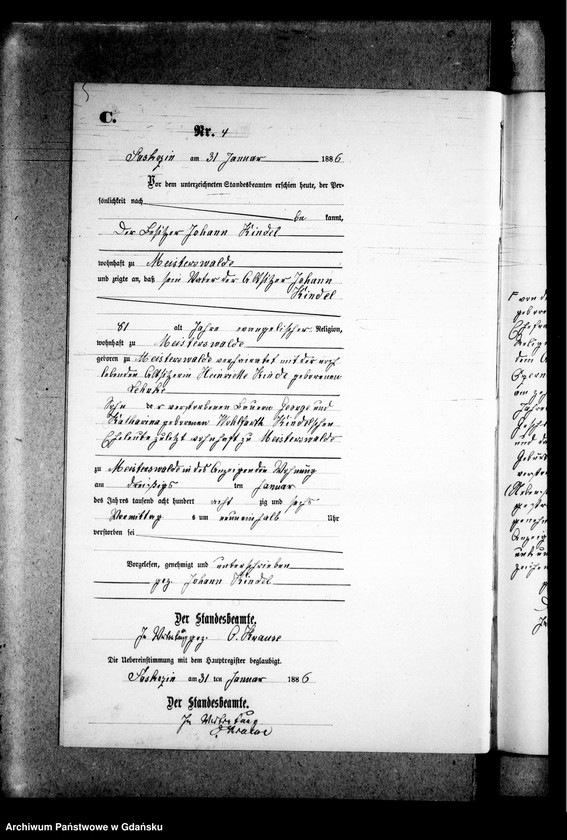 C.
Nr. 4
Saskozin am 31 Januar 1886
Vor dem unterzeichneten Standesbeamten erschien heute, der Per-
sönlichkeit nach
be kannt,
Der Besitzer Johann Kindel
wohnhaft zu Meisterswalde
und zeigte an, daß sein Vater der Altsitzer Johann
Kindel
81 alt Jahre evangelischer Religion,
wohnhaft zu Meisterswalde
geboren zu Meisterswalde verheirathet mit der noch
lebenden Altsitzerin Henriette Kindel geborenen
Sohn der verstorbenen Bauern George und
Katharina geborenen Wohlfarth Kindelschen
Eheleute zuletzt wohnhaft zu Meisterswalde
zu Meisterswalde in des Anzeigenden Wohnung
am dreißigsten Januar
des Jahres tausend acht hundert acht zig und sechs
Vormittags um neun einhalb Uhr
verstorben sei
Vorgelesen, genehmigt und unterschrieben
gez. Johann Kindel
Der Standesbeamte.
In Vertretung gez. O. Krause
Die Uebereinstimmung mit dem Hauptregister beglaubigt.
Saskozin am 31 ten Januar 1886
Der Standesbeamte.
In Vertretung
O Krause
Archiwum Państwowe w Gdańsku